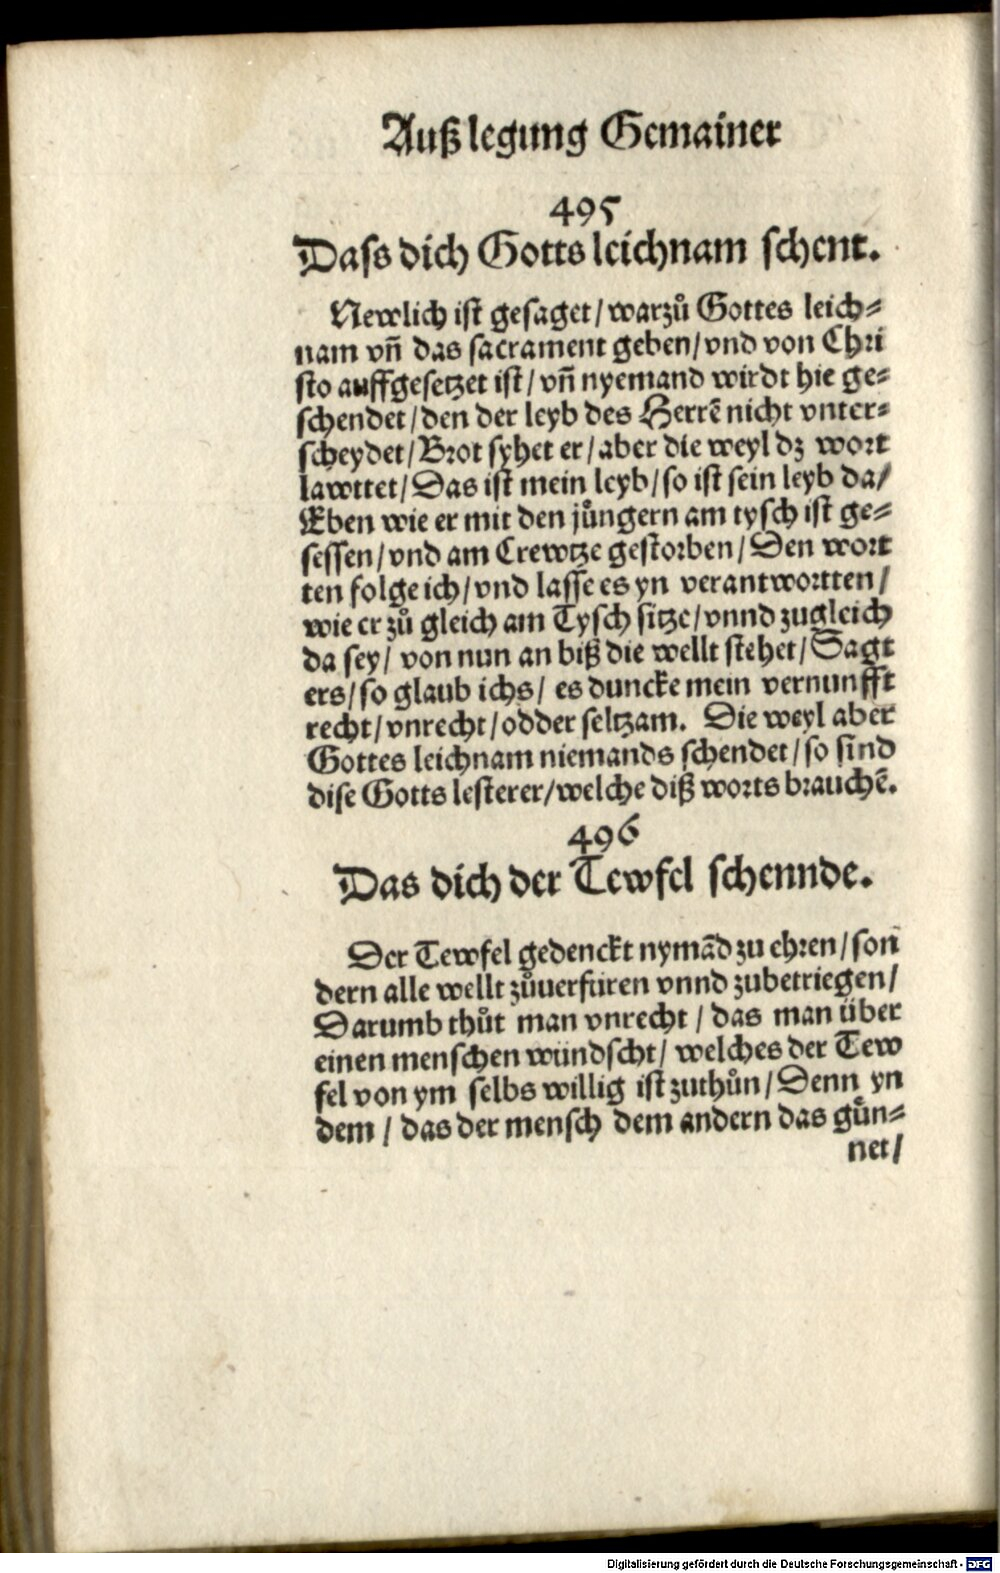 Außlegung Gemainer
495
Dass dich Gotts leichnam schent.
Newlich ist gesaget / warzů Gottes leich-
nam vñ das sacrament geben / vnd von Chri
sto auffgesetzet ist / vñ nyemand wirdt hie ge-
schendet / den der leyb des Herrẽ nicht vnter-
scheydet / Brot syhet er / aber die weyl dz wort
lawttet / Das ist mein leyb / so ist sein leyb da /
Eben wie er mit den jůngern am tysch ist ge-
sessen / vnd am Crewtze gestorben / Den wort
ten folge ich / vnd lasse es yn verantwortten /
wie er zů gleich am Tysch sitze / vnnd zugleich
da sey / von nun an biß die wellt stehet / Sagt
ers / so glaub ichs / es duncke mein vernunfft
recht / vnrecht / odder seltzam. Die weyl aber
Gottes leichnam niemands schendet / so sind
dise Gotts lesterer / welche diß worts brauchẽ.
496
Das dich der Tewfel schennde.
Der Tewfel gedenckt nymãd zu ehren / son
dern alle wellt zůuerfüren vnnd zubetriegen /
Darumb thůt man vnrecht / das man über
einen menschen wündscht / welches der Tew
fel von ym selbs willig ist zuthůn / Denn yn
dem / das der mensch dem andern das gůn-
net /
Digitalisierung gefördert durch die Deutsche Forschungsgemeinschaft - DFG